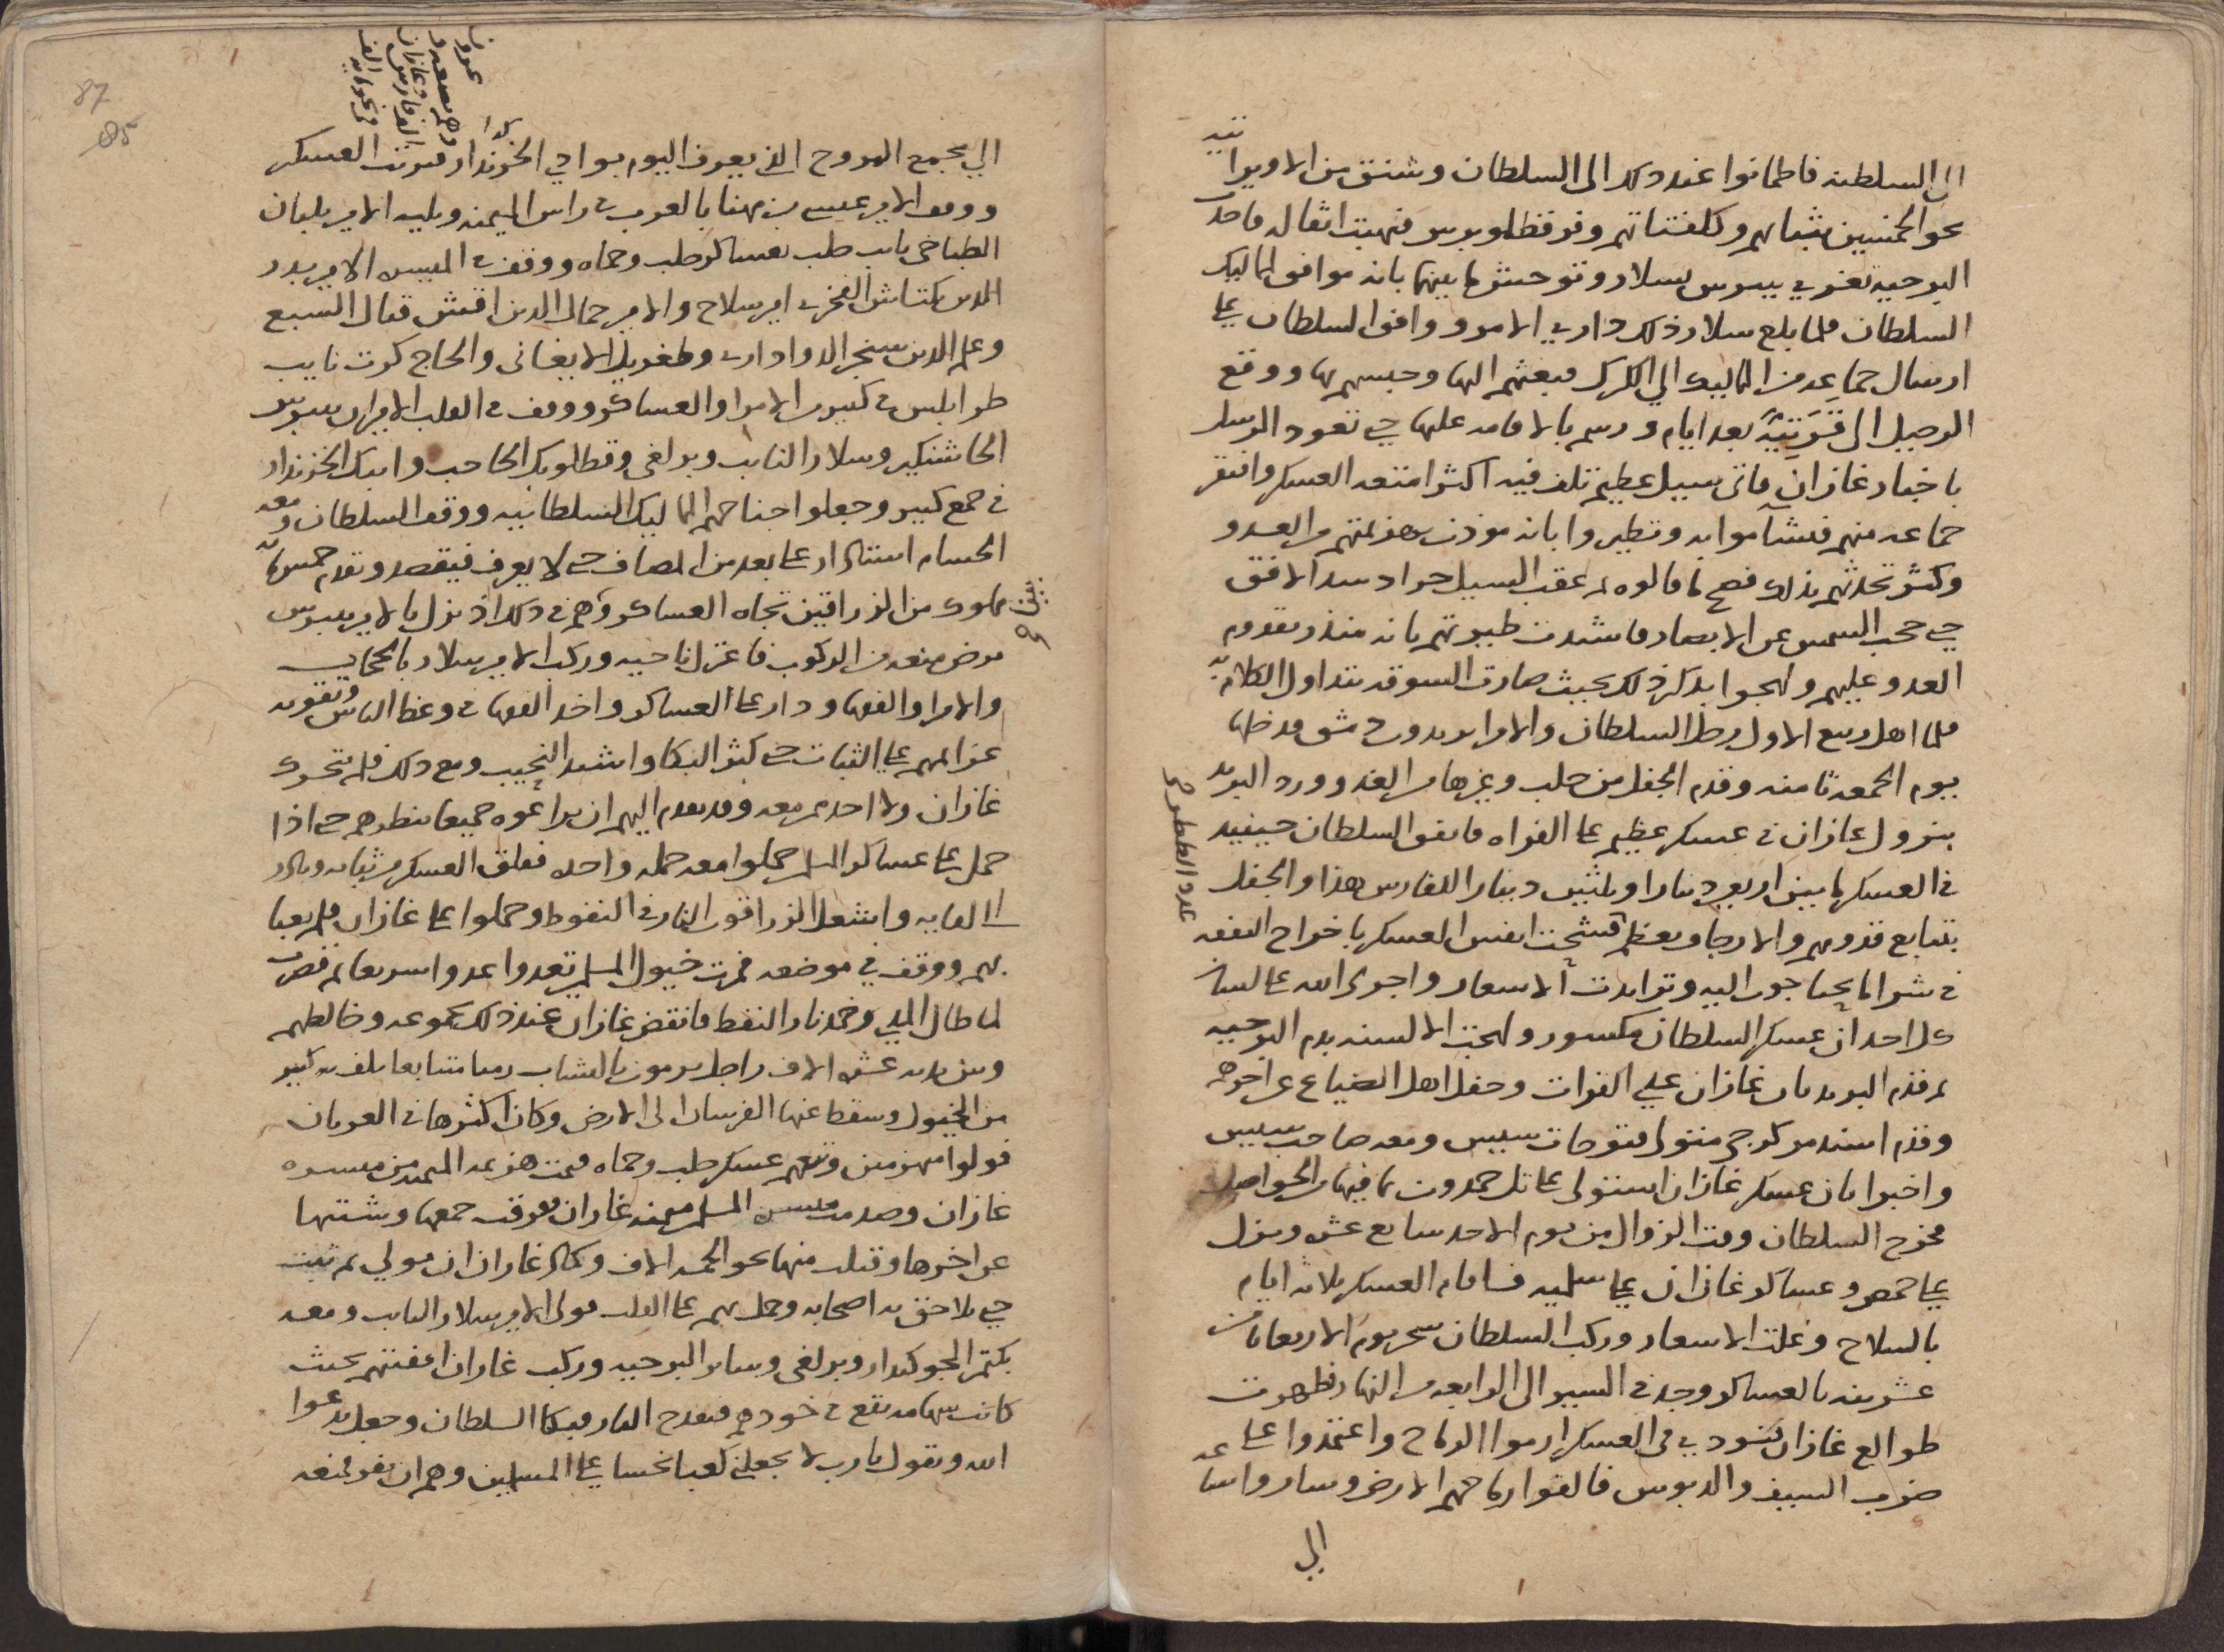 الى السلطنة فاطمانوا عند ذلك الى السلطان وشنق من الاويراتية
نحو الخمسين بثيابهم وكلفتاتهم وفر قطلوبرس فنهبت اثقاله فاخذت
البرجيه تغري بيبرس بسلار وتوحش ما بينهما بانه موافق لمماليك
السلطان فلما بلغ سلار ذلك دارى الامر ووافق السلطان على
ارسال جماعه من المماليك الي الكرك فبعثهم اليها وحبسهم بها ووقع
الرحيل الى قرتية بعد ايام ورسم بالاقامه عليها حتى تعود الرسل
باخبار غازان فاتى سيل عظيم تلف فيه اكثر امتعه العسكر وافتقر
جماعه منهم فتشآموا به وتطيروا بانه موذن بهزيمتهم من العدو
وكثر تحدثهم بذلك فصح ما قالوه ثم عقب السيل جراد سد الافق
حتى حجب الشمس عن الابصار فاشتدت طيرتهم بانه منذر بقدوم
العدو عليهم ولهجوا بذكر ذلك بحيث صارت السوقه تتداول الكلام به
فلما اهل ربيع الاول رحل السلطان والامرا يريدون دمشق فدخلها
يوم الجمعه ثامنه وقدم الجفل من حلب وغيرها من الغد وورد البريد
بنزول غازان في عسكر عظيم على الفراه فانفق السلطان حينيذ
في العسكر ما بين اربعين دينارا وثلثين دينارا للفارس هذا والجفل
يتتابع قدومهم والارجاف يعظم فشحت انفس العسكر باخراج النفقه
في شرا ما يحتاجون اليه وتزايدت الاسعار واجرى الله على لسان
كل احد ان عسكر السلطان مكسور ولهجت الالسنه بذم البرجيه
ثم قدم البريد بان غازان على الفرات وجفل اهل الضياع عن اخرهم
وقدم اسندمر كرجي متولي فتوحات سيس ومعه صاحب سيس
واخبرا بان عسكر غازان استولى على تل حمدون بما فيها من الحواصل
فخرج السلطان وقت الزوال من يوم الاحد سابع عشره ونزل
على حمص وعساكر غازان على سلميه فاقام العسكر ثلاثه ايام
بالسلاح وغلت الاسعار وركب السلطان سحر يوم الاربعا ثامن
عشرينه بالعساكر وجد في السير الى الرابعه من النهار فظهرت
طوالع غازان فنودي في العسكر ارموا الرماح واعتمدوا على
ضرب السيف والدبوس فالقوا رماحهم الارض وساروا ساعه
الى
عدد الططر
الي مجمع المروج الذي يعرف اليوم بوادي الخزندار فرتبت العسكر
ووقف الامير عيسى بن مهنا بالعرب في راس الميمنه ويليه الامير بلبان
الطباخي نايب حلب بعساكر حلب وحماه ووقف في الميسره الامير بدر
الدين بكتاش الفخري امير سلاح والامير جمال الدين اقش قتال السبع
وعلم الدين سنجر الدواداري وطغريل الايغاني والحاج كرت نايب
طرابلس في كثير من الامرا والعساكر ووقف في القلب الاميران بيبرس
الجاشنكير وسلار النايب وبرلغي وقطلوبك الحاجب وايبك الخزندار
في جمع كبير وجعلوا جناحهم المماليك السلطانيه ووقف السلطان ومعه
الحسام استادار على بعد من المصاف حتى لا يعرف فيقصد وتقدم خمس مايه
مملوك من الزراقين تجاه العساكر وهم في ذلك اذ نزل بالامير بيبرس
مرض منعه من الركوب فاعتزل ناحيه وركب الامير سلار بالحجاب
والامرا والفقها ودار على العساكر واخذ الفقها في وعظ الناس وتقويه
عزايمهم على الثبات حتى كثر البكا واشتد النحيب ومع ذلك فلم يتحرك
غازان ولا احد ممن معه وقد تقدم اليهم ان يراعوه جميعا ينظروه حتى اذا
حمل على عساكر المسلمين حملوا معه حمله واحده فقلق العسكر من ثباته وبادر
الى لقايه واشعل الزراقون النار في النفوط وحملوا على غازان فلم يعبا
بهم ووقف في موضعه فمرت خيول المسلمين تعدوا عدوا سريعا ثم قصرت
لما طال المدى وخمد نار النفط فانقض غازان عند ذلك بجموعه وخالطهم
وبين يديه عشره الاف راجل يرمون بالنشاب رميا متتابعا تلف به كثير
من الخيول وسقط عنها الفرسان الى الارض وكان اكثرها في العربان
فولوا منهزمين وتبعهم عسكر حلب وحماه فتمت هزيمه الميمنه من ميسره
غازان وصدمت ميسره المسلمين ميمنه غازان ففرقت جمعها وشتتها
عن اخرها وقتلت منها نحو الخمسه الاف وكاد غازان ان يولي ثم ثبت
حتى تلاحق به اصحابه وحمل بهم على القلب فولى الامير سلار النايب ومعه
بكتمر الجوكندار وبرلغي وساير البرجيه وركب غازان اقفيتهم بحيث
كانت سهامه تقع في خوذهم فتقدح النار فبكا السلطان وجعل يدعوا
الله ويقول يا رب لا تجعلني كعبا نحسا على المسلمين وهم ان يفر فمنعه
87
85